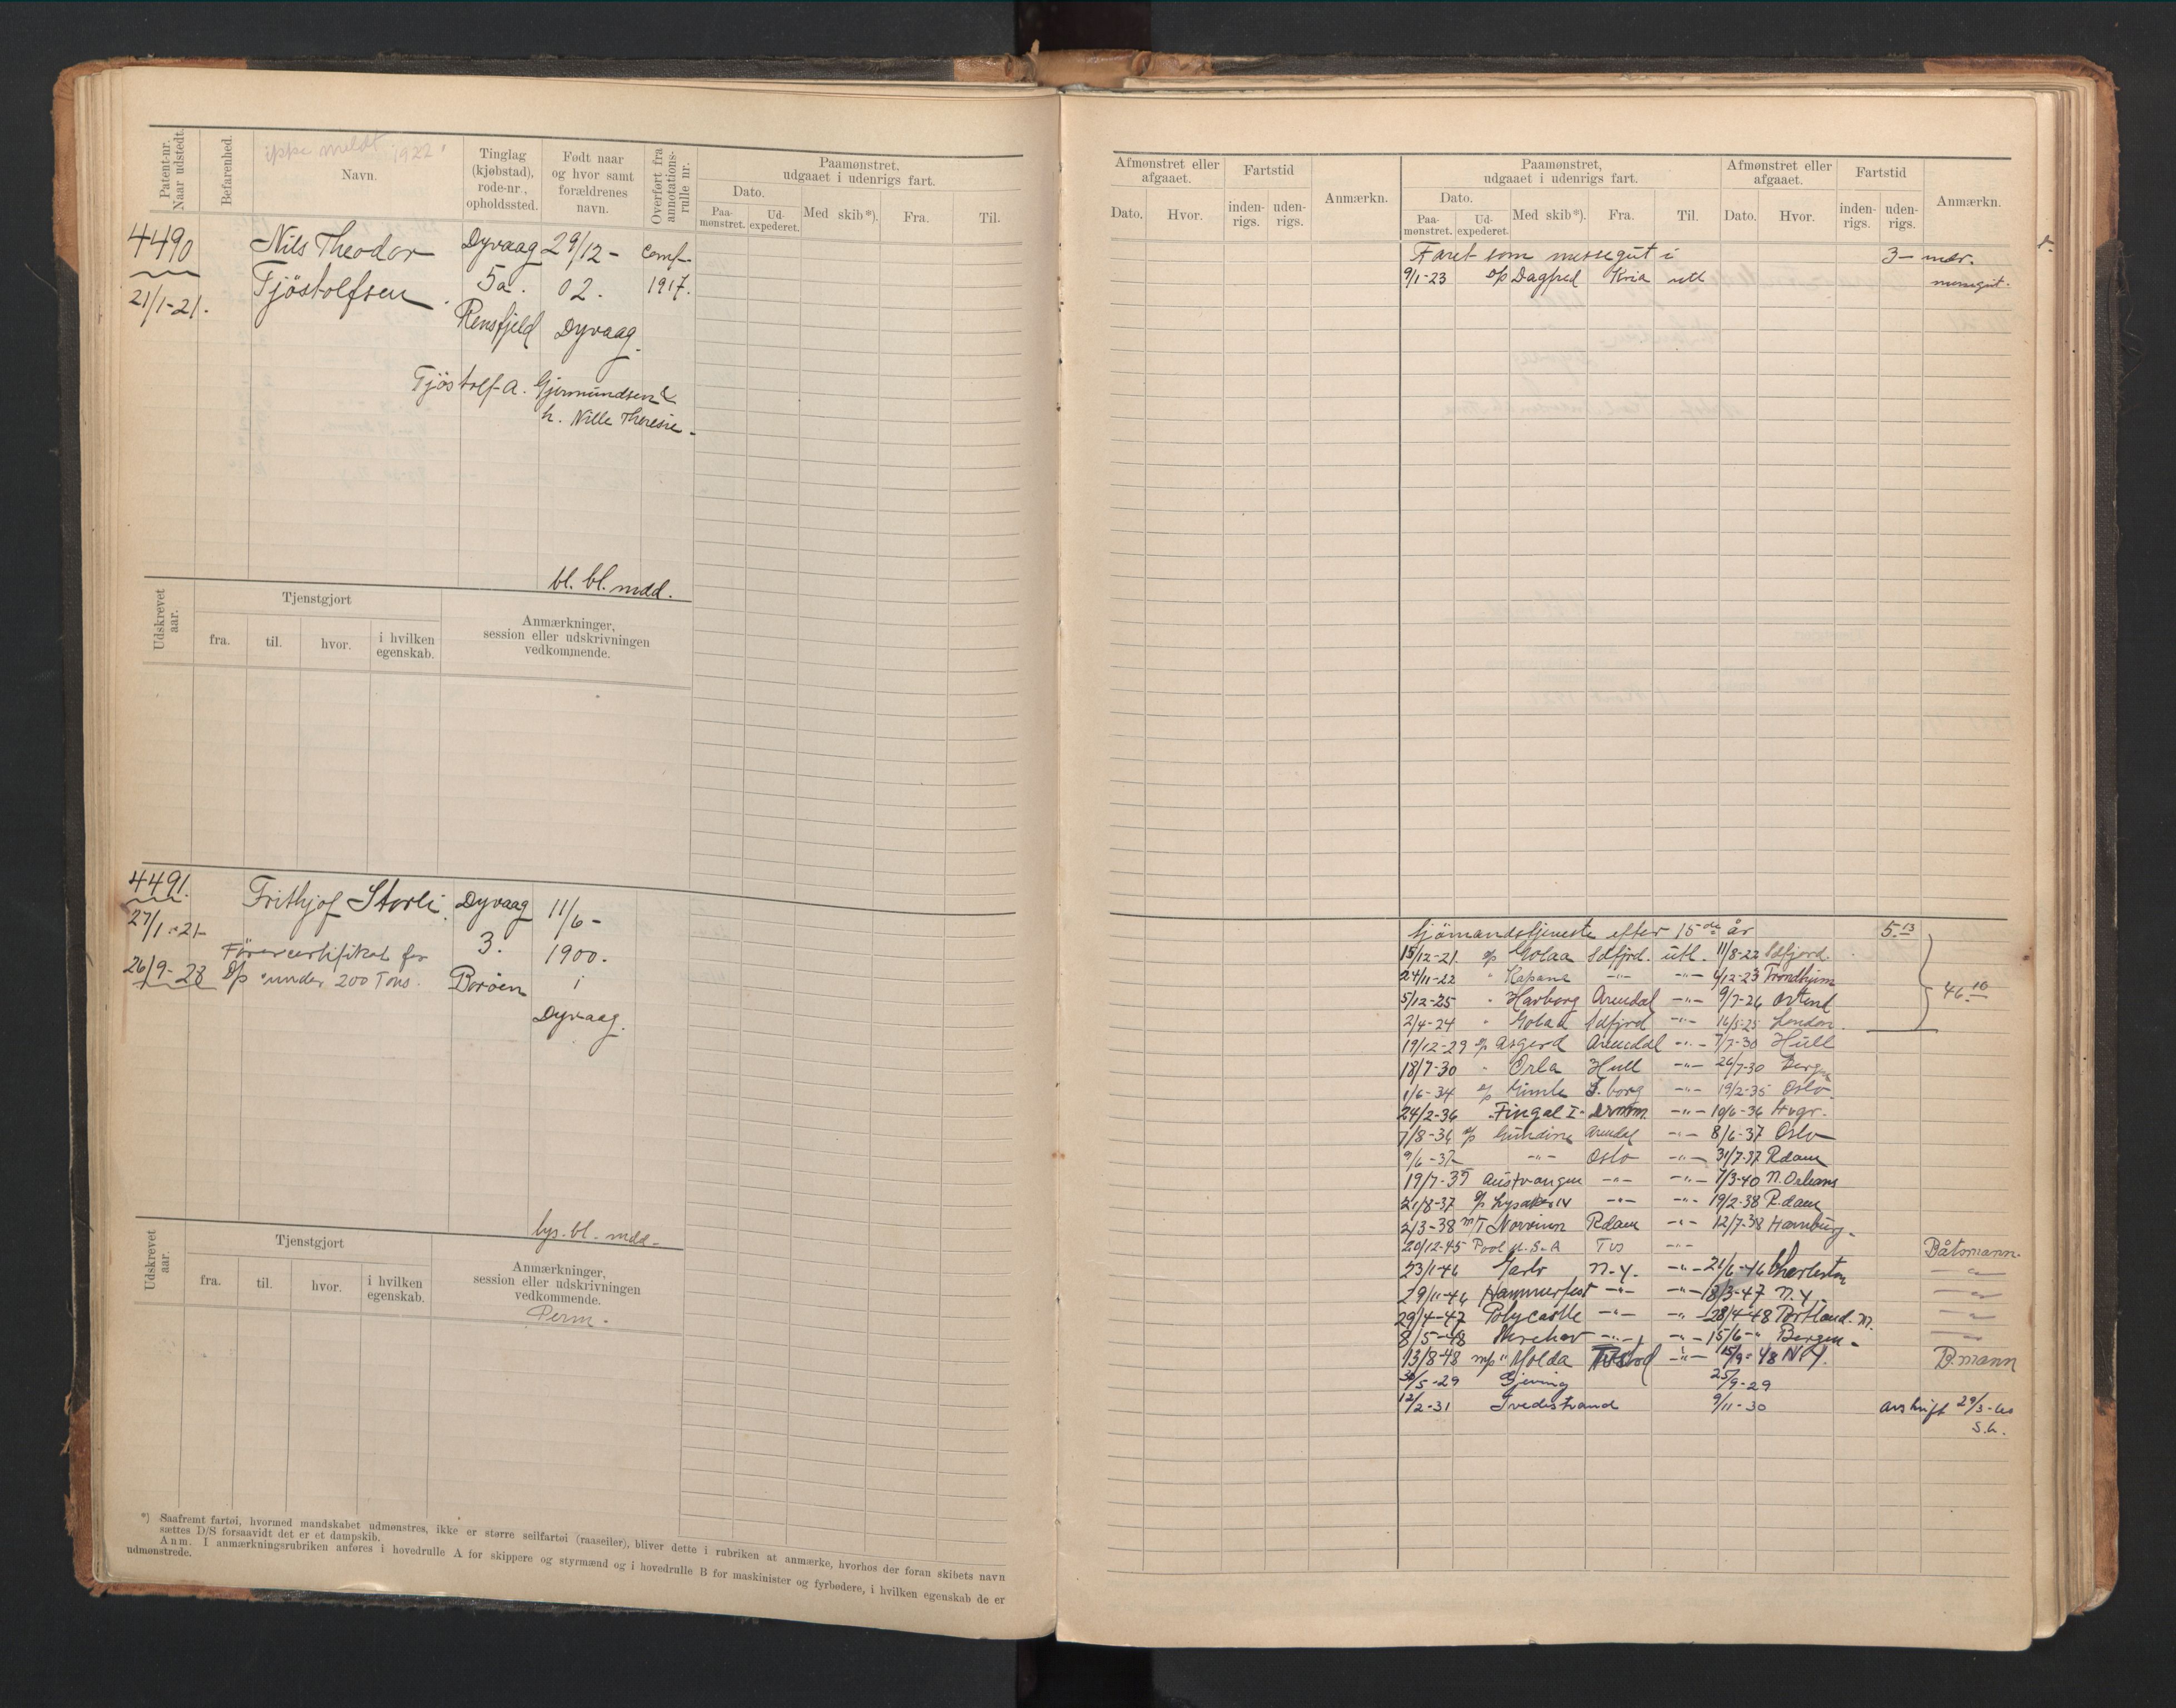 Patent-nr. Naar udstedt.
Befarenhed.
ippe meldt 1922.
Navn.
Tinglag (kjøbstad), rode-nr., opholdssted.
Født naar og hvor samt forældrenes navn.
Overført fra annotations-rulle nr.
Paamønstret, udgaaet i udenrigs fart.
Dato.
Paa-mønstret.
Ud-expederet.
Med skib*).
Fra.
Til.
4490
21/1-21.
Nils Theodor
Tjöstolfsen
Dyvaag
5a.
Rensfjeld
29/12-
02.
Dyvaag.
conf.
1917.
Tjöstolf A. Gjermundsen &
h. Nille Theresie.
bl. bl. mdd.
Udskrevet aar.
Tjenstgjort
fra.
til.
hvor.
i hvilken egenskab.
Anmærkninger, session eller udskrivningen vedkommende.
4491.
27/1-21
Frithjof Storli.
Dyvaag
3.
Borøen
11/6-
1900.
i
Dyvaag.
Förercertifikat for
26/9-28 D/p under 200 Tons.
lys. bl. mdd.
Udskrevet aar.
Tjenstgjort
fra.
til.
hvor.
i hvilken egenskab.
Anmærkninger, session eller udskrivningen vedkommende.
Perm.
*) Saafremt fartøi, hvormed mandskabet udmønstres, ikke er større seilfartøi (raaseiler), bliver dette i rubriken at anmærke, hvorhos der foran skibets navn
sættes D/S forsaavidt det er et dampskib.
Anm. I anmærkningsrubriken anføres i hovedrulle A for skippere og styrmænd og i hovedrulle B for maskinister og fyrbødere, i hvilken egenskab de er
udmønstrede.
Afmønstret eller afgaaet.
Dato.
Hvor.
Fartstid
inden-rigs.
uden-rigs.
Anmærkn.
Paamønstret, udgaaet i udenrigs fart.
Dato.
Paa-mønstret.
Ud-expederet.
Med skib*).
Fra.
Til.
Afmønstret eller afgaaet.
Dato.
Hvor.
Fartstid
inden-rigs.
uden-rigs.
Anmærkn.
Faret som messegut i 3 - mdr.
9/1-23 D/p Dagfred Kria utl messegut.
Sjömandstjeneste efter 15de år 5.13
15/12-21. D/p Golaa Idfjord. utl. 11/8-22 Idfjord.
24/11-22 " Kapana -"- -"- 4/12-23 Trondhjem
5/12-25 " Havborg Arendal -"- 9/7-26 Ostend
46.10
2/4-24 " Golaa Idfjord -"- 16/5-25 London.
19/12-29 D/p Asgerd Arendal -"- 7/7-30 Hull
18/7-30 " Orla Hull -"- 26/7-30 Bergen
1/6-34 D/p Gimle S.borg -"- 19/2-35 Oslo.
24/2-36 " Fingal I Drmm. -"- 10/6-36 Hvgr.
7/8-36 D/p Gundine Arendal -"- 8/6-37 Oslo
9/6-37 -"- Oslo -"- 31/7-37 Rdam
19/7-39 Austvangen -"- -"- 7/3-40 N. Orleans
21/8-37 D/p Lysaker IV -"- -"- 19/2-38 R.dam
2/3-38 M/T Norvinn Rdam -"- 12/7-38 Hamburg.
20/12-45 Pool U.S.A Tvs -"- Båtsmann.
23/1-46 Jarlo N.Y. -"- 21/6-46 Charleston -"-
29/11-46 Hammerfest -"- -"- 18/3-47 N.Y. -"-
29/4-47 Polycastle -"- -"- 28/4-48 Portland. M. -"-
8/5-48 Nerehav -"- -"- 15/6-" Bergen. -"-
13/8-48 m/p "Molda -"- 15/9-48 N.Y. B.mann
30/5-29 Gjeving 25/9-29
12/2-31 Tvedestrand 9/11-30 avskrift 29/3-60
S.h.